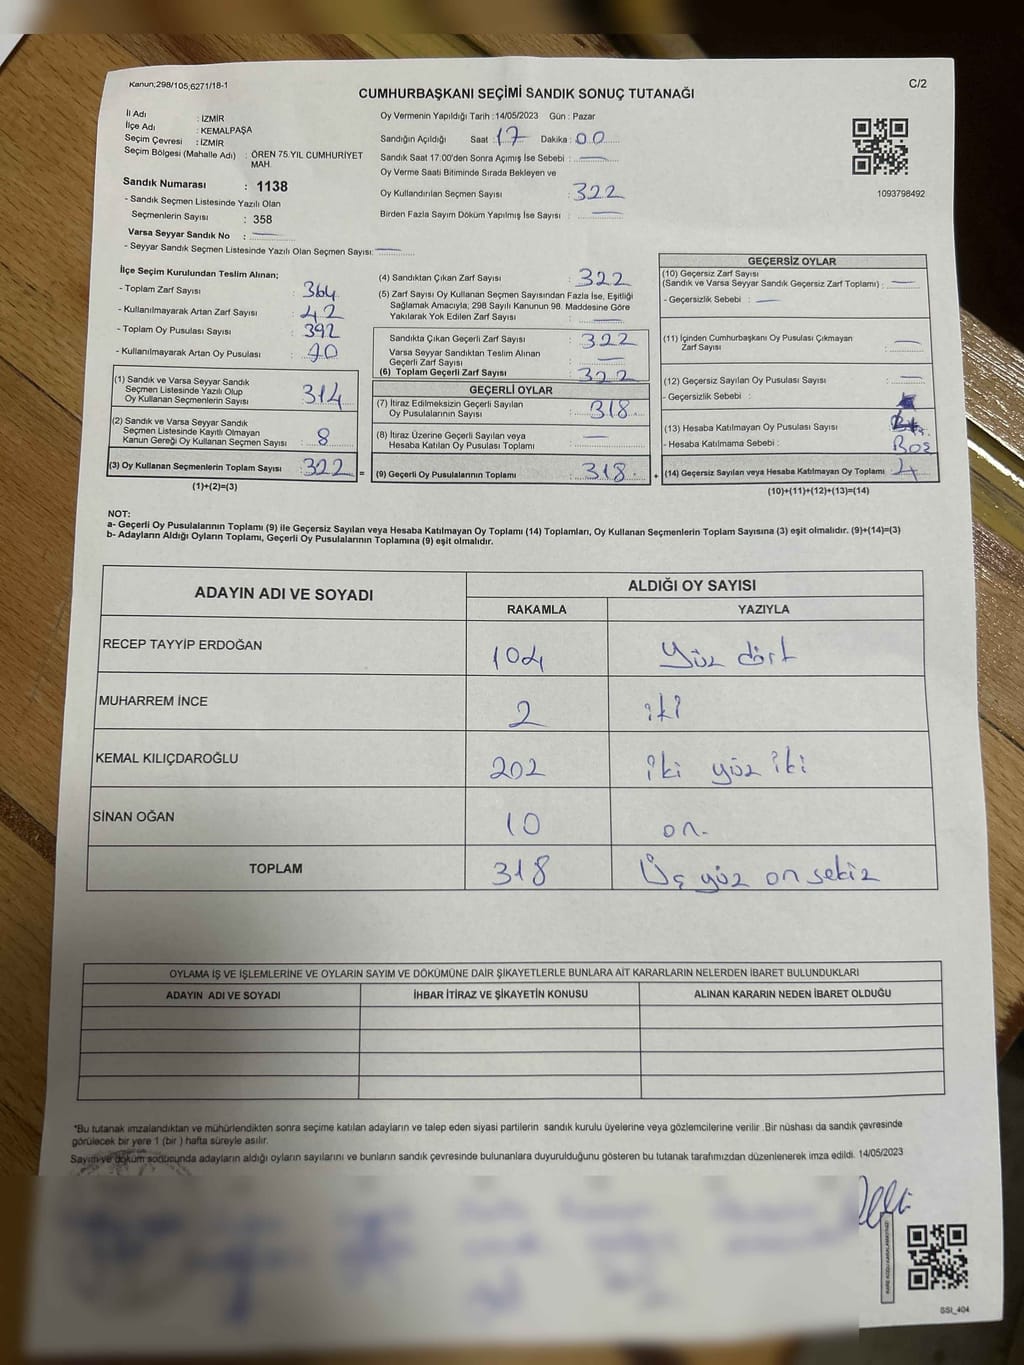 Kanun,298/105,6271/18-1
C/2
CUMHURBAŞKANI SEÇİMİ SANDIK SONUÇ TUTANAĞI
İl Adı : İZMİR
İlçe Adı : KEMALPAŞA
Seçim Çevresi : İZMİR
Seçim Bölgesi (Mahalle Adı) : ÖREN 75.YIL CUMHURİYET
MAH.
Sandık Numarası : 1138
- Sandık Seçmen Listesinde Yazılı Olan
Seçmenlerin Sayısı : 358
Varsa Seyyar Sandık No :
- Seyyar Sandık Seçmen Listesinde Yazılı Olan Seçmen Sayısı:
Oy Vermenin Yapıldığı Tarih : 14/05/2023 Gün : Pazar
Sandığın Açıldığı Saat : 17 Dakika : 00
Sandık Saat 17:00'den Sonra Açımış İse Sebebi :
Oy Verme Saati Bitiminde Sırada Bekleyen ve
Oy Kullandırılan Seçmen Sayısı : 322
Birden Fazla Sayım Döküm Yapılmış İse Sayısı :
1093798492
İlçe Seçim Kurulundan Teslim Alınan;
- Toplam Zarf Sayısı : 364
- Kullanılmayarak Artan Zarf Sayısı : 42
- Toplam Oy Pusulası Sayısı : 392
- Kullanılmayarak Artan Oy Pusulası : 70
(1) Sandık ve Varsa Seyyar Sandık
Seçmen Listesinde Yazılı Olup
Oy Kullanan Seçmenlerin Sayısı : 314
(2) Sandık ve Varsa Seyyar Sandık
Seçmen Listesinde Kayıtlı Olmayan
Kanun Gereği Oy Kullanan Seçmen Sayısı : 8
(3) Oy Kullanan Seçmenlerin Toplam Sayısı : 322 =
(1)+(2)=(3)
(4) Sandıktan Çıkan Zarf Sayısı : 322
(5) Zarf Sayısı Oy Kullanan Seçmen Sayısından Fazla İse, Eşitliği
Sağlamak Amacıyla, 298 Sayılı Kanunun 98. Maddesine Göre
Yakılarak Yok Edilen Zarf Sayısı :
Sandıkta Çıkan Geçerli Zarf Sayısı : 322
Varsa Seyyar Sandıktan Teslim Alınan
Geçerli Zarf Sayısı :
(6) Toplam Geçerli Zarf Sayısı : 322
GEÇERLİ OYLAR
(7) İtiraz Edilmeksizin Geçerli Sayılan
Oy Pusulalarının Sayısı : 318
(8) İtiraz Üzerine Geçerli Sayılan veya
Hesaba Katılan Oy Pusulası Toplamı :
(9) Geçerli Oy Pusulalarının Toplamı : 318 +
GEÇERSİZ OYLAR
(10) Geçersiz Zarf Sayısı
(Sandık ve Varsa Seyyar Sandık Geçersiz Zarf Toplamı) :
- Geçersizlik Sebebi :
(11) İçinden Cumhurbaşkanı Oy Pusulası Çıkmayan
Zarf Sayısı :
(12) Geçersiz Sayılan Oy Pusulası Sayısı :
- Geçersizlik Sebebi :
(13) Hesaba Katılmayan Oy Pusulası Sayısı :
- Hesaba Katılmama Sebebi : Boş
(14) Geçersiz Sayılan veya Hesaba Katılmayan Oy Toplamı : 4
(10)+(11)+(12)+(13)=(14)
NOT:
a- Geçerli Oy Pusulalarının Toplamı (9) ile Geçersiz Sayılan veya Hesaba Katılmayan Oy Toplamı (14) Toplamları, Oy Kullanan Seçmenlerin Toplam Sayısına (3) eşit olmalıdır. (9)+(14)=(3)
b- Adayların Aldığı Oyların Toplamı, Geçerli Oy Pusulalarının Toplamına (9) eşit olmalıdır.
ADAYIN ADI VE SOYADI ALDIĞI OY SAYISI
RAKAMLA YAZIYLA
RECEP TAYYİP ERDOĞAN 104 Yüz dört
MUHARREM İNCE 2 iki
KEMAL KILIÇDAROĞLU 202 iki yüz iki
SİNAN OĞAN 10 on.
TOPLAM 318 Üç yüz on sekiz
OYLAMA İŞ VE İŞLEMLERİNE VE OYLARIN SAYIM VE DÖKÜMÜNE DAİR ŞİKAYETLERLE BUNLARA AİT KARARLARIN NELERDEN İBARET BULUNDUKLARI
ADAYIN ADI VE SOYADI İHBAR İTİRAZ VE ŞİKAYETİN KONUSU ALINAN KARARIN NEDEN İBARET OLDUĞU
*Bu tutanak imzalandıktan ve mühürlendikten sonra seçime katılan adayların ve talep eden siyasi partilerin sandık kurulu üyelerine veya gözlemcilerine verilir .Bir nüshası da sandık çevresinde
görülecek bir yere 1 (bir ) hafta süreyle asılır.
Sayım ve döküm sonucunda adayların aldığı oyların sayılarını ve bunların sandık çevresinde bulunanlara duyurulduğunu gösteren bu tutanak tarafımızdan düzenlenerek imza edildi. 14/05/2023
SSI_404